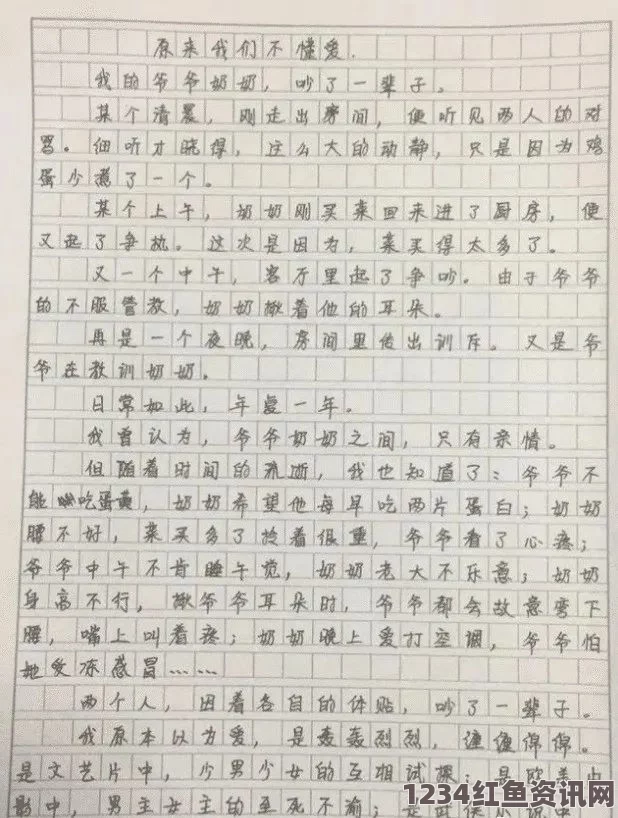 原来我们不懂爱.
我的爷爷奶奶，吵了一辈子。
某个清晨，刚走出房间，便听见两人的对
骂。细听才晓得，这么大的动静，只是因为鸡
蛋少煮了一个。
某个上午，奶奶刚买菜回来进了厨房，便
又起了争执。这次是因为，菜买得太多了。
又一个中午，客厅里起了争吵。由于爷爷
的不服管教，奶奶揪着他的耳朵。
再是一个夜晚，房间里传出训斥。又是爷
爷在教训奶奶。
日常如此，年复一年。
我曾认为，爷爷奶奶之间，只有亲情。
但随着时间的流逝，我也知道了：爷爷不
能吃蛋黄，奶奶希望他每早吃两片蛋白；奶奶
腰不好，菜买多了拎着很重，爷爷看了心疼；
爷爷中午不肯睡午觉，奶奶老大不乐意；奶奶
身高不行，揪爷爷耳朵时，爷爷都会故意弯下
腰，嘴上叫着疼；奶奶晚上爱打空调，爷爷怕
她受冻感冒……
两个人，因着各自的体贴，吵了一辈子。
我原本以为爱，是轰轰烈烈，缠缠绵绵。
是文艺片中，少男少女的互相试探；是欧美电
影中，男主女主的至死不渝；是
1234红鱼资讯网